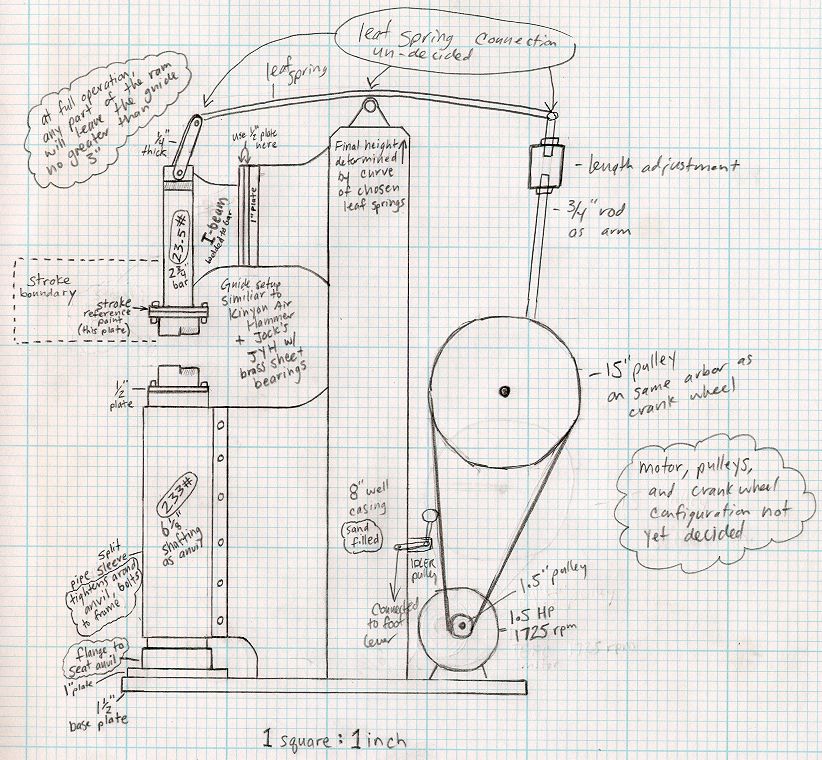 leaf spring connection
un-decided
leaf
spring
at full operation,
any part of the ram
will leave the guide
no greater than
3"
1/4"
thick
use 1/2" plate
here
1" plate
I-beam
welded to bar
23.5#
2 3/4"
bar
Final height
determined
by curve
of chosen
leaf springs
length adjustment
3/4" rod
as arm
Stroke
boundary
stroke
reference
point
(this plate)
Guide setup
similiar to
Kinyon Air
Hammer
+ Jock's
JYH w/
brass sheet
bearings
15" pulley
on same arbor as
crank wheel
1/2"
plate
motor, pulleys,
and crankwheel
configuration not
yet decided
233#
6 1/8"
shafting
as anvil
8" well
casing
sand
filled
IDLER
pulley
connected
to foot
lever
1.5" pulley
1.5 HP
1725 rpm
split
pipe sleeve
tightens around
anvil, bolts
to frame
flange to
seat anvil
1" plate
1 1/2"
base plate
1 square : 1 inch